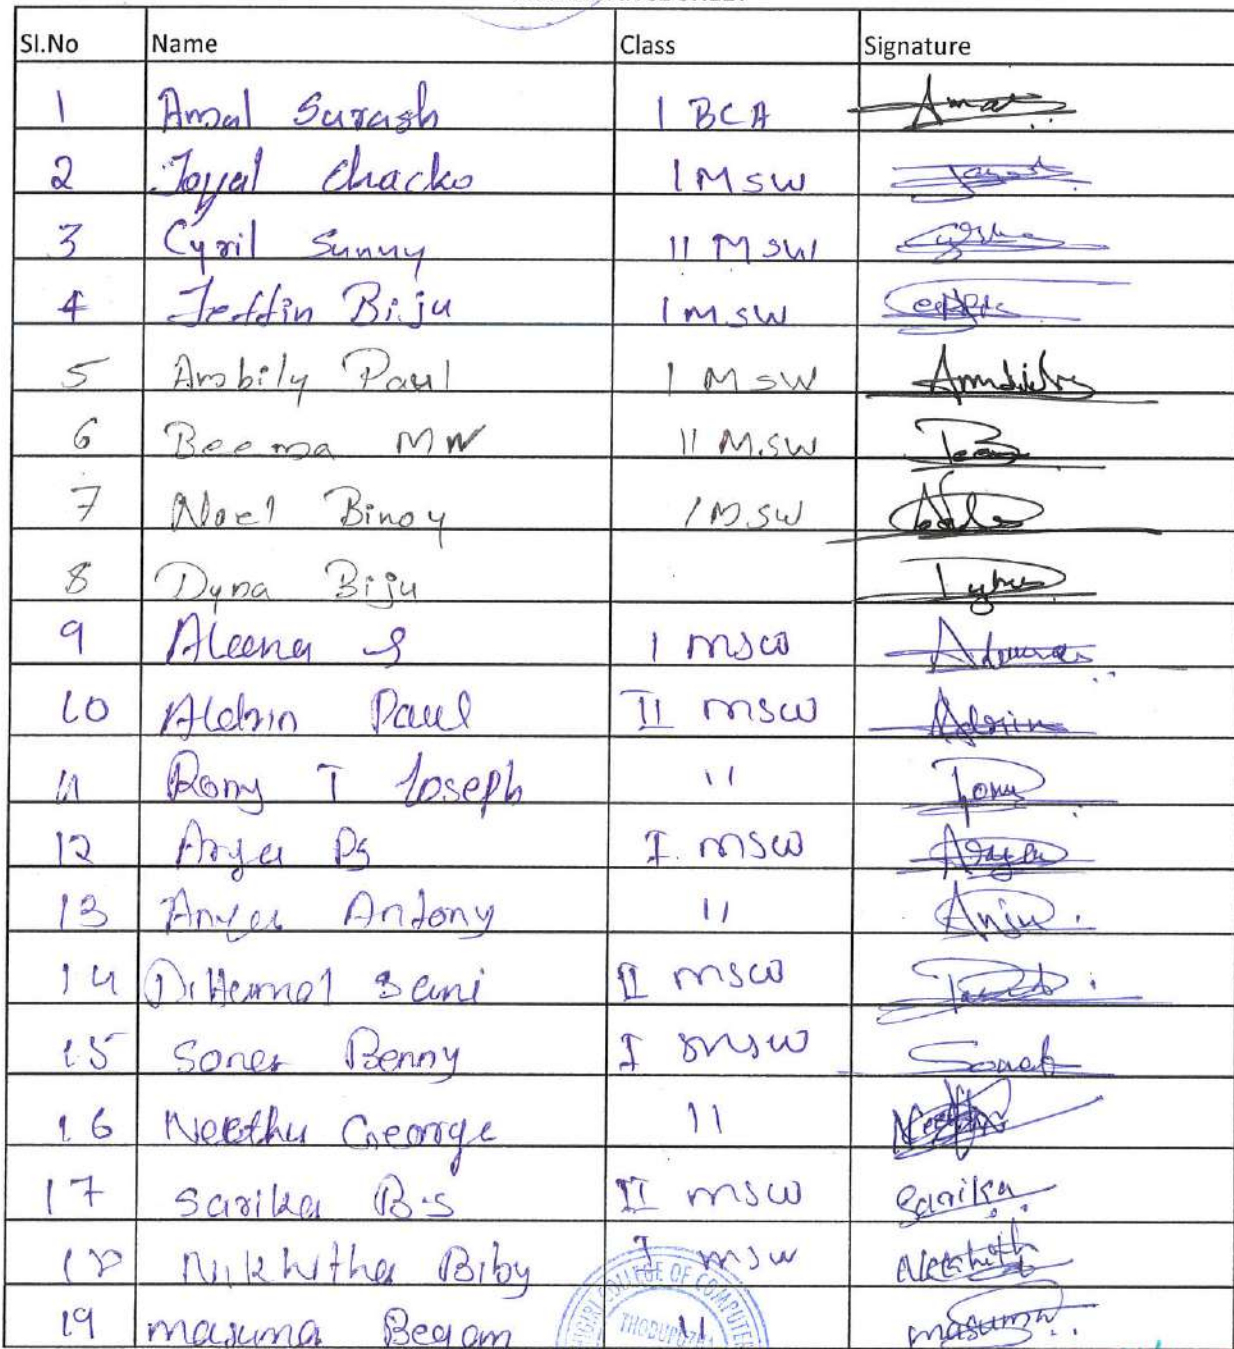 Sl.No Name Class Signature
1 Amal Surash I BCA Amal
2 Joyal Chacko I MSW
3 Cyril Sunny II MSW
4 Jeffin Biju I MSW
5 Ambily Paul I MSW
6 Beema MN II M.SW
7 Noel Binoy I MSW
8 Dyna Biju
9 Aleena S I MSW
10 Aldrin Paul II MSW
11 Rony T Joseph 11 Rony
12 Arya Ps I. MSW Arya
13 Antony 11 Anju
14 II MSW
15 Sona Benny I MSW Sona
16 Neethu George 11
17 Sarika B.S II MSW Sarika
18 Nikhitha Biby I MSW
19 Masuma Begam 11 Masuma
COLLEGE OF COMPUTER
THODUPUZHA